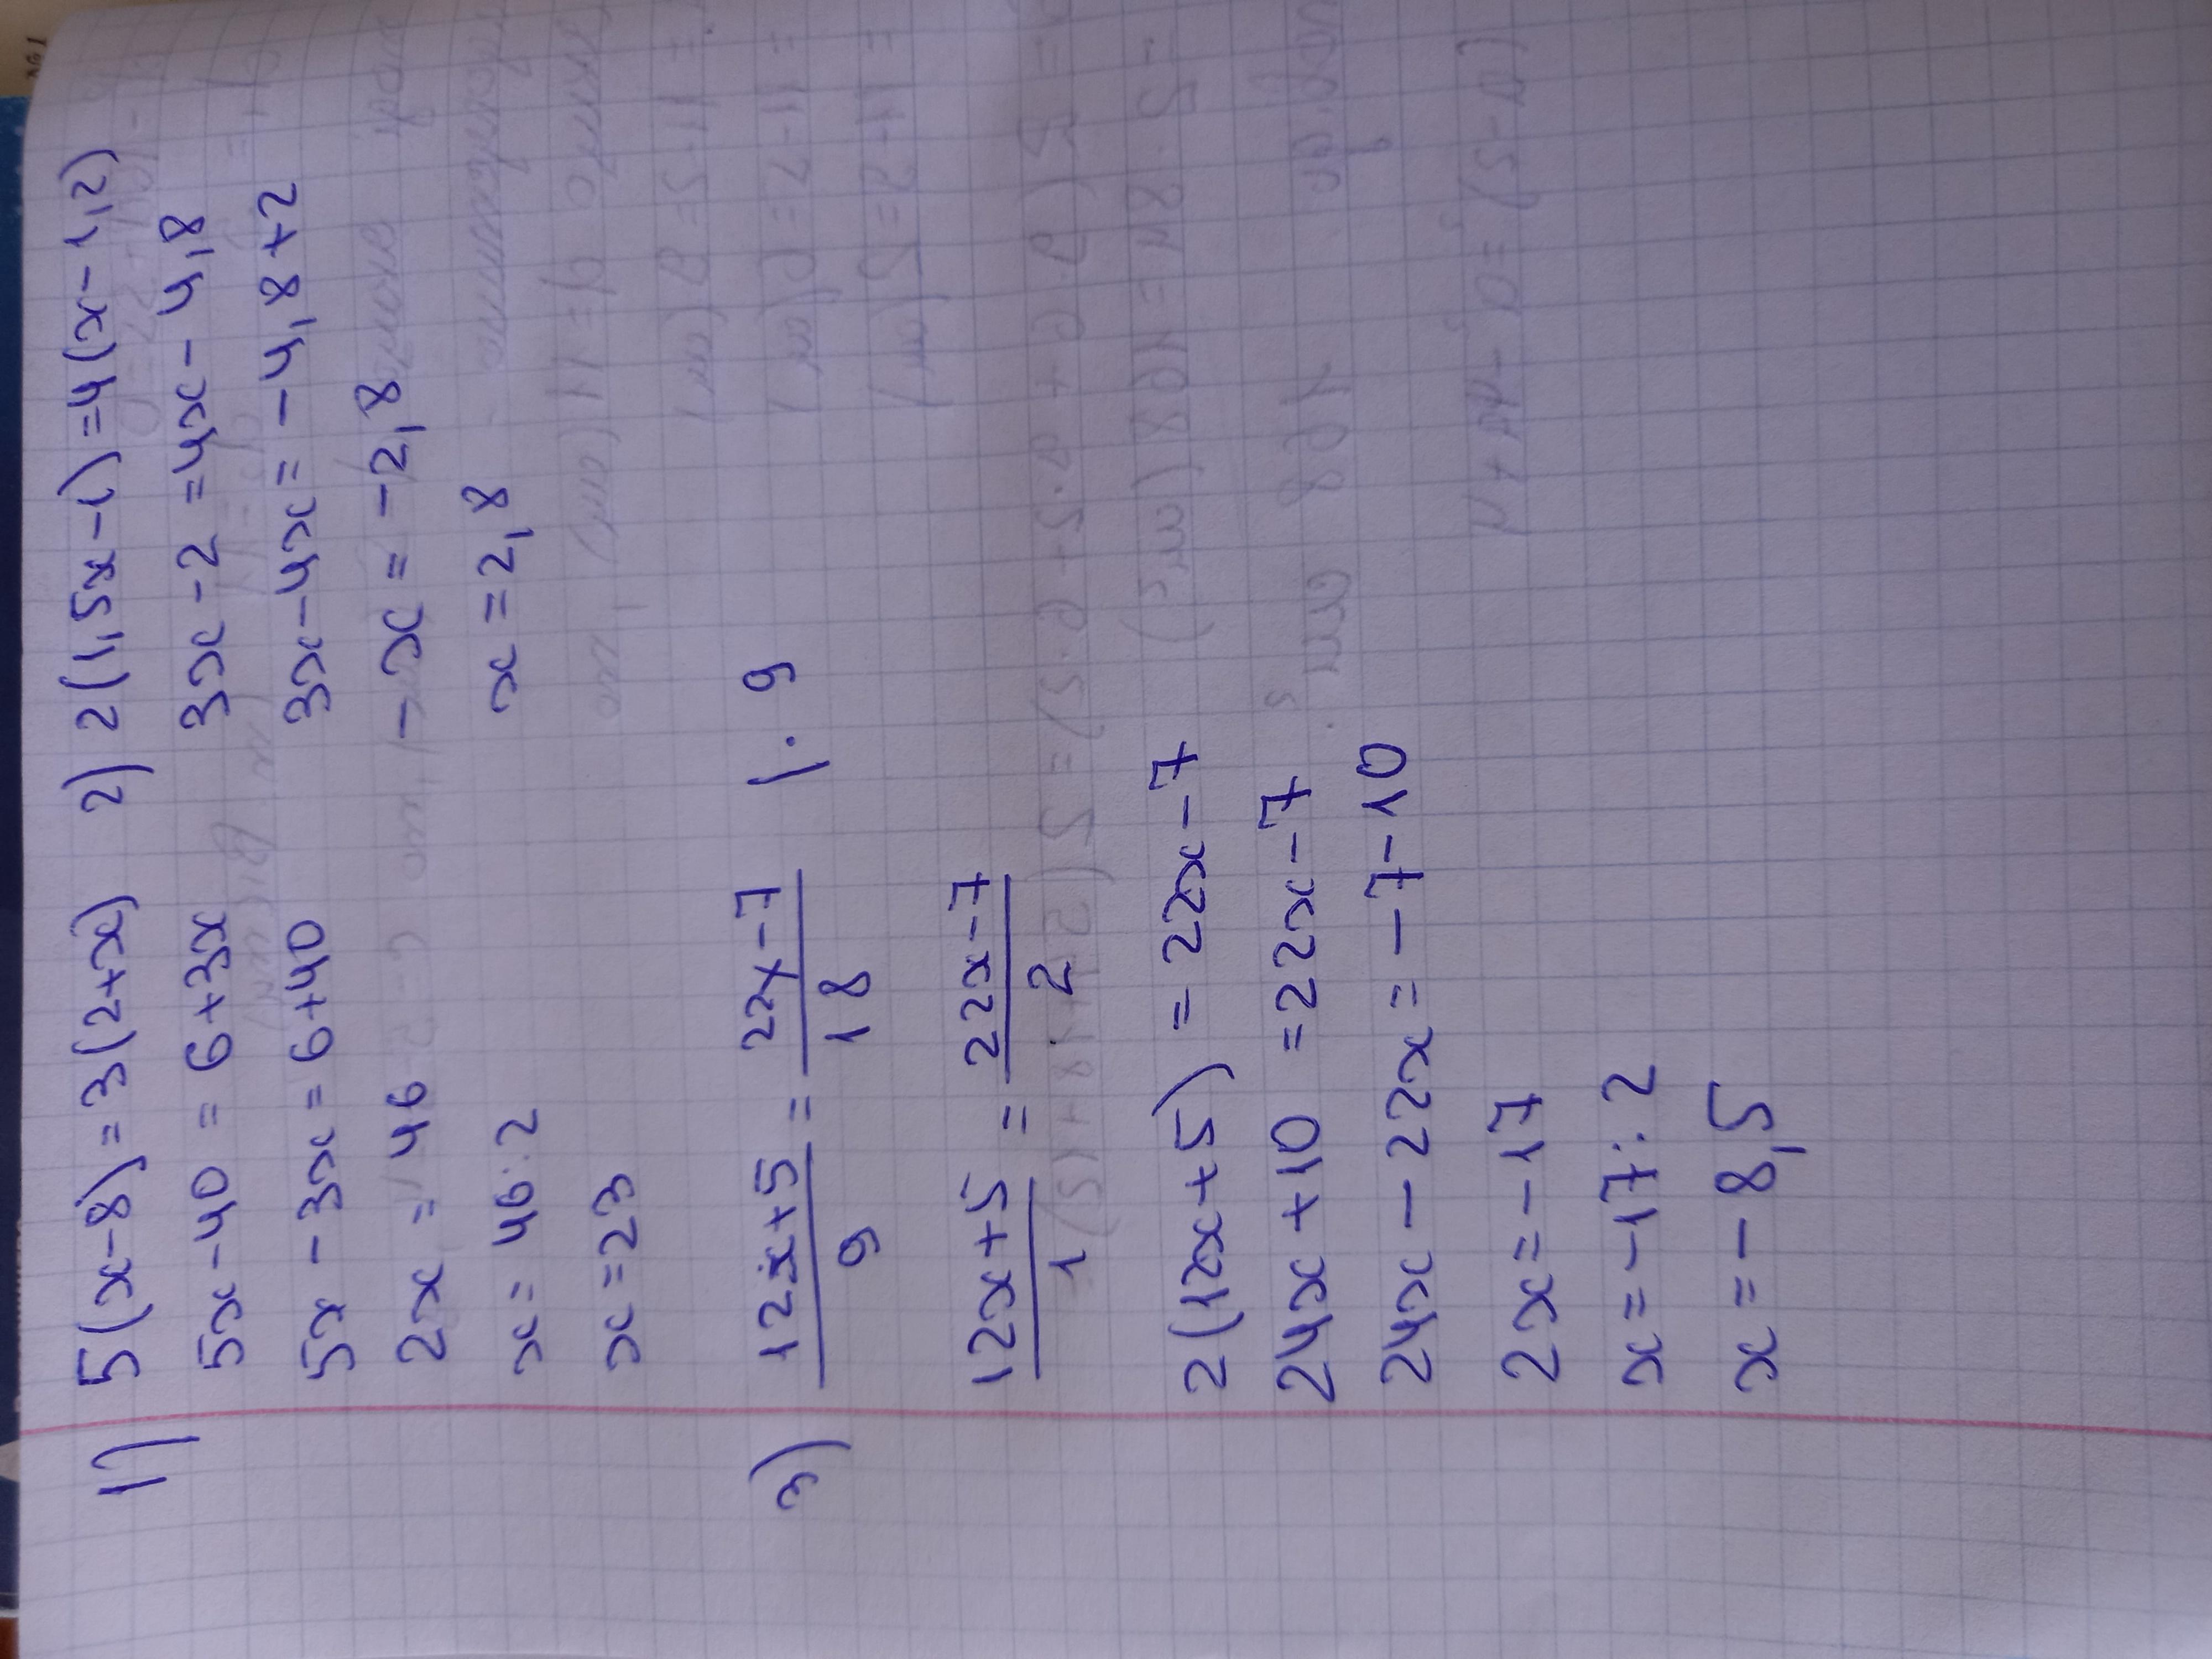 1) 5(x-8)=3(2+x)
5x-40=6+3x
5x-3x=6+40
2x=46
x=46:2
x=23
2) 2(1,5x-1)=4(x-1,2)
3x-2=4x-4,8
3x-4x=-4,8+2
-x=-2,8
x=2,8
3) \frac{12x+5}{9}=\frac{22x-7}{18} |·9
\frac{12x+5}{1}=\frac{22x-7}{2}
2(12x+5)=22x-7
24x+10=22x-7
24x-22x=-7-10
2x=-17
x=-17:2
x=-8,5